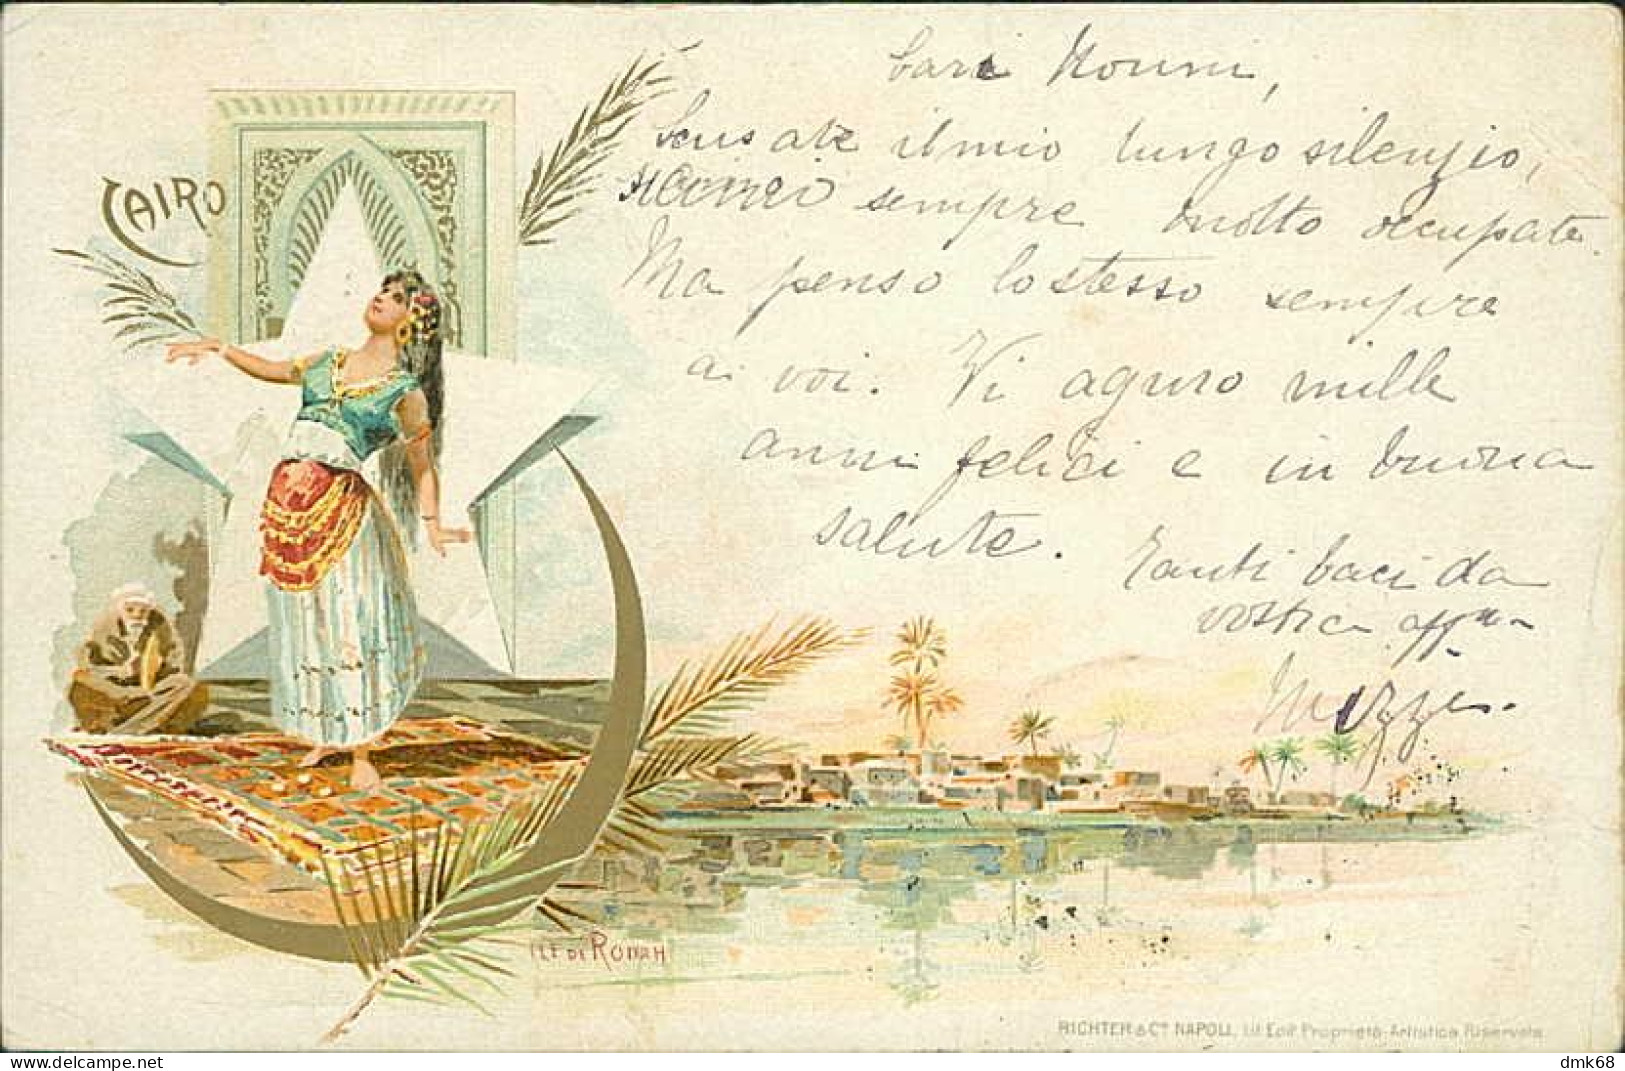 CAIRO
Cari Nonni,
Scusate il mio lungo silenzio,
sempre molto occupata.
Ma penso lo stesso sempre
a voi. Vi aguro mille
anni felici e in buona
salute.
Tanti baci da
vostra aff.ma
ILE DE RODAH
RICHTER & Co. NAPOLI, Lit. Edit. Proprietà Artistica Riservata
dmk68